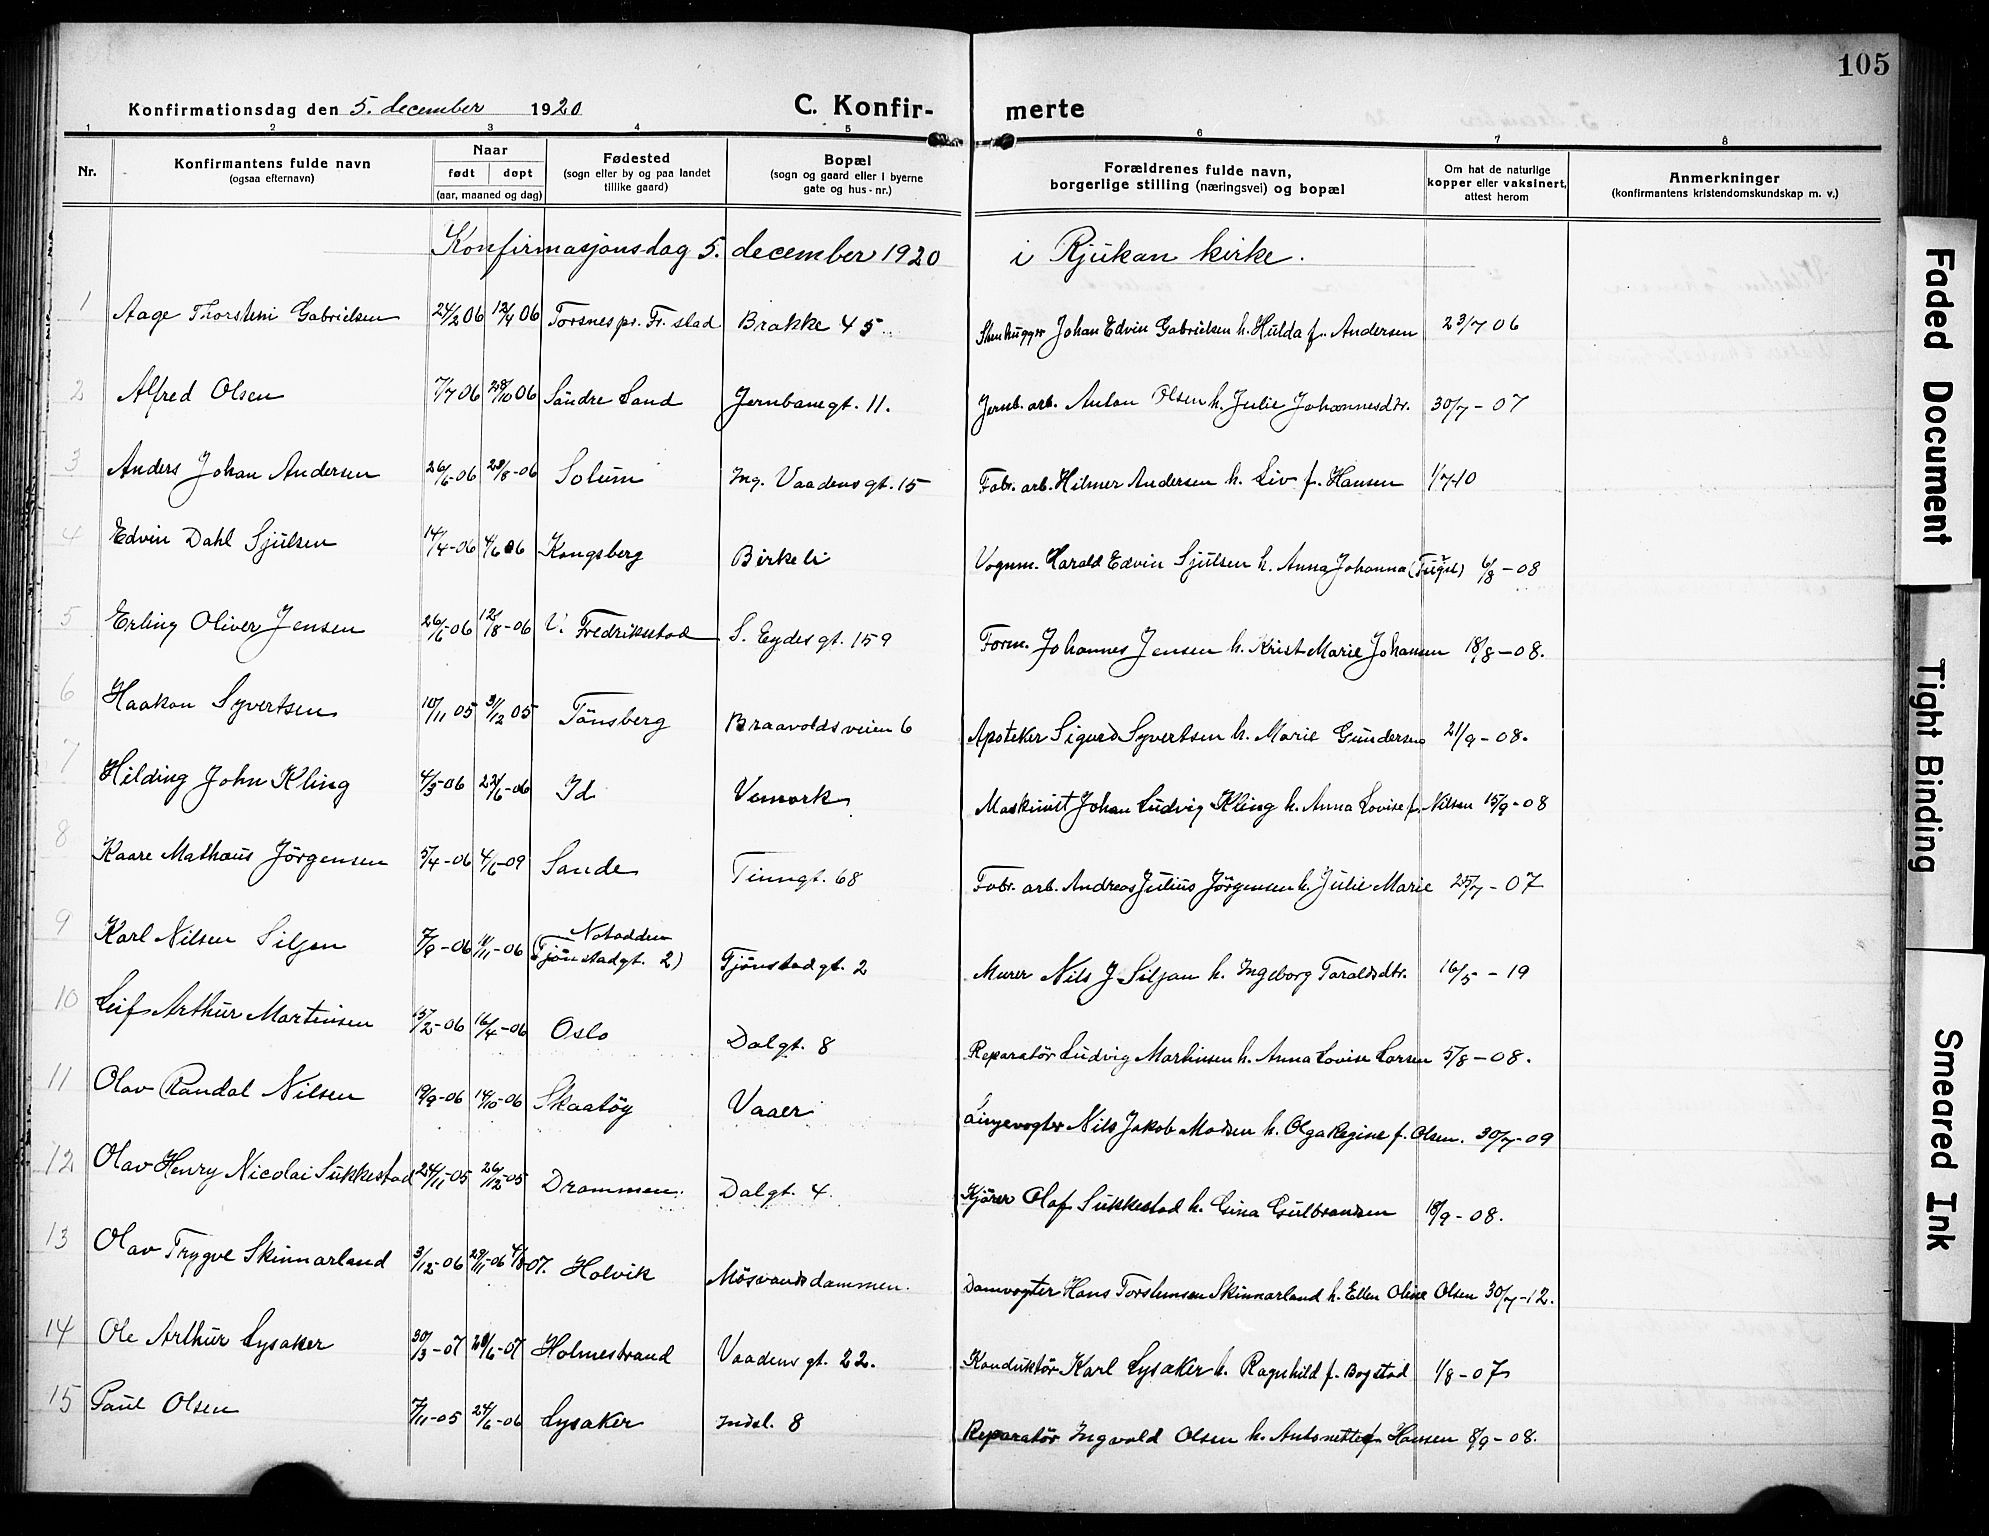 105
Konfirmationsdag den 5. december 1920 C. Konfir- merte
1 2 3 4 5 6 7 8
Nr. Konfirmantens fulde navn (ogsaa efternavn) Naar født døpt (aar, maaned og dag) Fødested (sogn eller by og paa landet tillike gaard) Bopæl (sogn og gaard eller i byerne gate og hus-nr.) Forældrenes fulde navn, borgerlige stilling (næringsvei) og bopæl Om hat de naturlige kopper eller vaksinert, attest herom Anmerkninger (konfirmantens kristendomskundskap m. v.)
Konfirmasjonsdag 5. december 1920 i Rjukan kirke.
1 Aage Thorstein Gabrielsen 24/2 06 12/4 06 Torsnes pr. Fr. stad Brakke 45 Stenhugger Johan Edvin Gabrielsen h. Hulda f. Andersen 23/7 06
2 Alfred Olsen 7/7 06 28/10 06 Söndre Land Jernbanegt. 11. Jernb. arb. Anton Olsen h. Julie Johannesdtr. 30/7 - 07
3 Anders Johan Andersen 26/6-06 23/8-06 Solum Ing. Vaadens gt. 15 Fabr. arb. Hilmer Andersen h. Liv f. Hansen 1/7-10
4 Edvin Dahl Sjulsen 14/4-06 4/6 06 Kongsberg Birkeli Vognm. Harald Edvin Sjulsen h. Anna Johanna 6/8 - 08
5 Erling Oliver Jensen 26/6-06 12/8-06 V. Fredrikstad S. Eydes gt. 159 Form. Johannes Jensen h. Krist Marie Johansen 18/8 - 08.
6 Haakon Syvertsen 10/11 05 31/12 05 Tönsberg Braavoldsveien 6 Apoteker Sigurd Syvertsen h. Marie Gundersen 21/9 - 08.
7 Hilding John Kling 4/3-06 22/6-06 Id Vemork Maskinist Johan Ludvig Kling h. Anna Lovise f. Nilsen 15/9-08
8 Kaare Mathæus Jörgensen 5/4-06 4/6-09 Sande Tinngt. 68 Fabr. arb. Andreas Julius Jörgensen h. Julie Marie 25/7 - 07
9 Karl Nilsen Siljan 7/9-06 11/11-06 Notodden (Tjönstadgt. 2) Tjönstadgt. 2 Murer Nils J Siljan h. Ingeborg Taraldsdtr. 16/5 - 19
10 Leif Arthur Martinsen 15/2-06 16/4-06 Oslo Dalgt. 8 Reparatör Ludvig Martinsen h. Anna Lovise Larsen 5/8 - 08.
11 Olav Randal Nilsen 19/9-06 14/10-06 Skaatöy Vaaer Linjevogter Nils Jakob Madsen h. Olga Regine f. Olsen. 30/7-09
12 Olav Henry Nicolai Sukkestad 24/11-05 26/12-05 Drammen. Dalgt. 4. Kjörer Olaf Sukkestad h. Gina Gulbrandsen 18/9 - 08.
13 Olav Trygve Skinnarland 3/12-06 29/11-06 4/8-07. Holvik Mösvandsdammen. Damvogter Hans Torstensen Skinnarland h. Ellen Oline Olsen 30/7-12.
14 Ole Arthur Lysaker 30/3-07 28/6-07 Holmestrand Vaadens gt. 22. Konduktör Karl Lysaker h. Ragnhild f. Bogstad 1/8 - 07
15 Paul Olsen 7/11-05 24/6-06 Lysaker Indsl. 8 Reparatör Ingvald Olsen h. Antonette f. Hansen 8/9 - 08.
Faded Document
Tight Binding
Smeared Ink